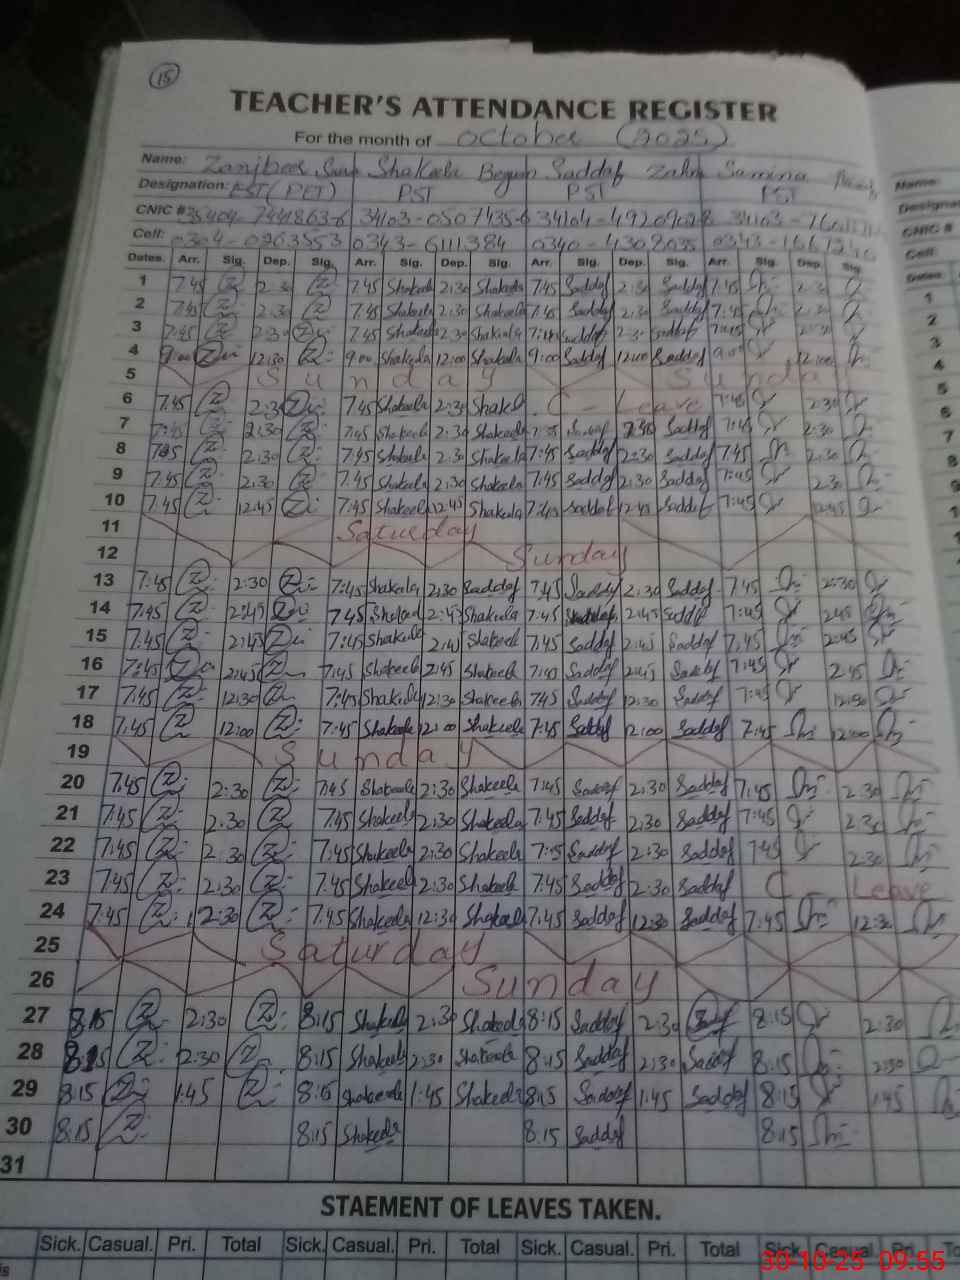 15
TEACHER'S ATTENDANCE REGISTER
For the month of October (2025)
Name: Shakeela Begum Saddaf Zahra Samina
Designation: EST (PET) PST PST PST
CNIC # 34103-0507435-6
Cell: 0304-0263553 0343-6111384 0340-4302035
Dates. Arr. Sig. Dep. Sig. Arr. Sig. Dep. Sig. Arr. Sig. Dep. Sig. Arr. Sig. Dep. Sig.
1 7:45 2:30 7:45 Shakeela 2:30 Shakeela 7:45 Saddaf 2:30 Saddaf 7:45 2:30
2 7:45 2:30 7:45 Shakeela 2:30 Shakeela 7:45 Saddaf 2:30 Saddaf 7:45 2:30
3 7:45 2:30 7:45 Shakeela 2:30 Shakeela 7:45 Saddaf 2:30 Saddaf 7:45 2:30
4 9:00 12:30 9:00 Shakeela 12:00 Shakeela 9:00 Saddaf 12:00 Saddaf 9:00 12:00
5 Sunday Sunday
6 7:45 2:30 7:45 Shakeela 2:30 Shakeel C - Leave 7:45 2:30
7 7:45 2:30 7:45 Shakeela 2:30 Shakeela 7:45 Saddaf 2:30 Saddaf 7:45 2:30
8 7:45 2:30 7:45 Shakeela 2:30 Shakeela 7:45 Saddaf 2:30 Saddaf 7:45 2:30
9 7:45 2:30 7:45 Shakeela 2:30 Shakeela 7:45 Saddaf 2:30 Saddaf 7:45 2:30
10 7:45 12:45 7:45 Shakeela 12:45 Shakeela 7:45 Saddaf 12:45 Saddaf 7:45 12:45
11 Saturday
12 Sunday
13 7:45 2:30 7:45 Shakeela 2:30 Saddaf 7:45 Saddaf 2:30 Saddaf 7:45 2:30
14 7:45 2:45 7:45 Shakeela 2:45 Shakeela 7:45 2:45 Saddaf 7:45 2:45
15 7:45 2:45 7:45 Shakeela 2:45 Shakeela 7:45 Saddaf 2:45 Saddaf 7:45 2:45
16 7:45 2:45 7:45 Shakeela 2:45 Shakeela 7:45 Saddaf 2:45 Saddaf 7:45 2:45
17 7:45 12:30 7:45 Shakeela 12:30 Shakeela 7:45 Saddaf 12:30 Saddaf 7:45 12:30
18 7:45 12:00 7:45 Shakeela 12:00 Shakeela 7:45 Saddaf 12:00 Saddaf 7:45 12:00
19 Sunday
20 7:45 2:30 7:45 Shakeela 2:30 Shakeela 7:45 Saddaf 2:30 Saddaf 7:45 2:30
21 7:45 2:30 7:45 Shakeela 2:30 Shakeela 7:45 Saddaf 2:30 Saddaf 7:45 2:30
22 7:45 2:30 7:45 Shakeela 2:30 Shakeela 7:45 Saddaf 2:30 Saddaf 7:45 2:30
23 7:45 2:30 7:45 Shakeela 2:30 Shakeela 7:45 Saddaf 2:30 Saddaf C Leave
24 7:45 12:30 7:45 Shakeela 12:30 Shakeela 7:45 Saddaf 12:30 Saddaf 7:45 12:30
25 Saturday
26 Sunday
27 8:15 2:30 8:15 Shakeela 2:30 Shakeela 8:15 Saddaf 2:30 8:15 2:30
28 8:15 2:30 8:15 Shakeela 2:30 Shakeela 8:15 Saddaf 2:30 Saddaf 8:15 2:30
29 8:15 1:45 8:15 Shakeela 1:45 Shakeela 8:15 Saddaf 1:45 Saddaf 8:15 1:45
30 8:15 8:15 Shakeela 8:15 Saddaf 8:15
31
STAEMENT OF LEAVES TAKEN.
Sick. Casual. Pri. Total Sick. Casual. Pri. Total Sick. Casual. Pri. Total Sick. Casual. Pri.
30-10-25 09:55